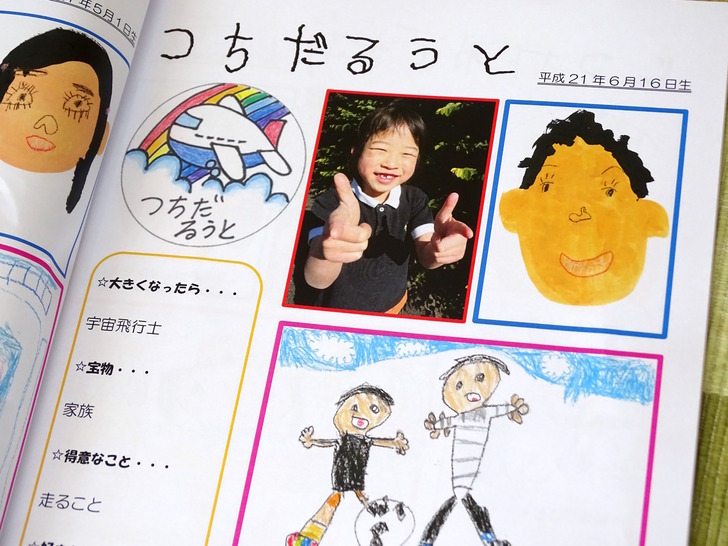 年5月1日生
つちだるうと
平成21年6月16日生
つちだ
るうと
☆大きくなったら・・・
宇宙飛行士
☆宝物・・・
家族
☆得意なこと・・・
走ること